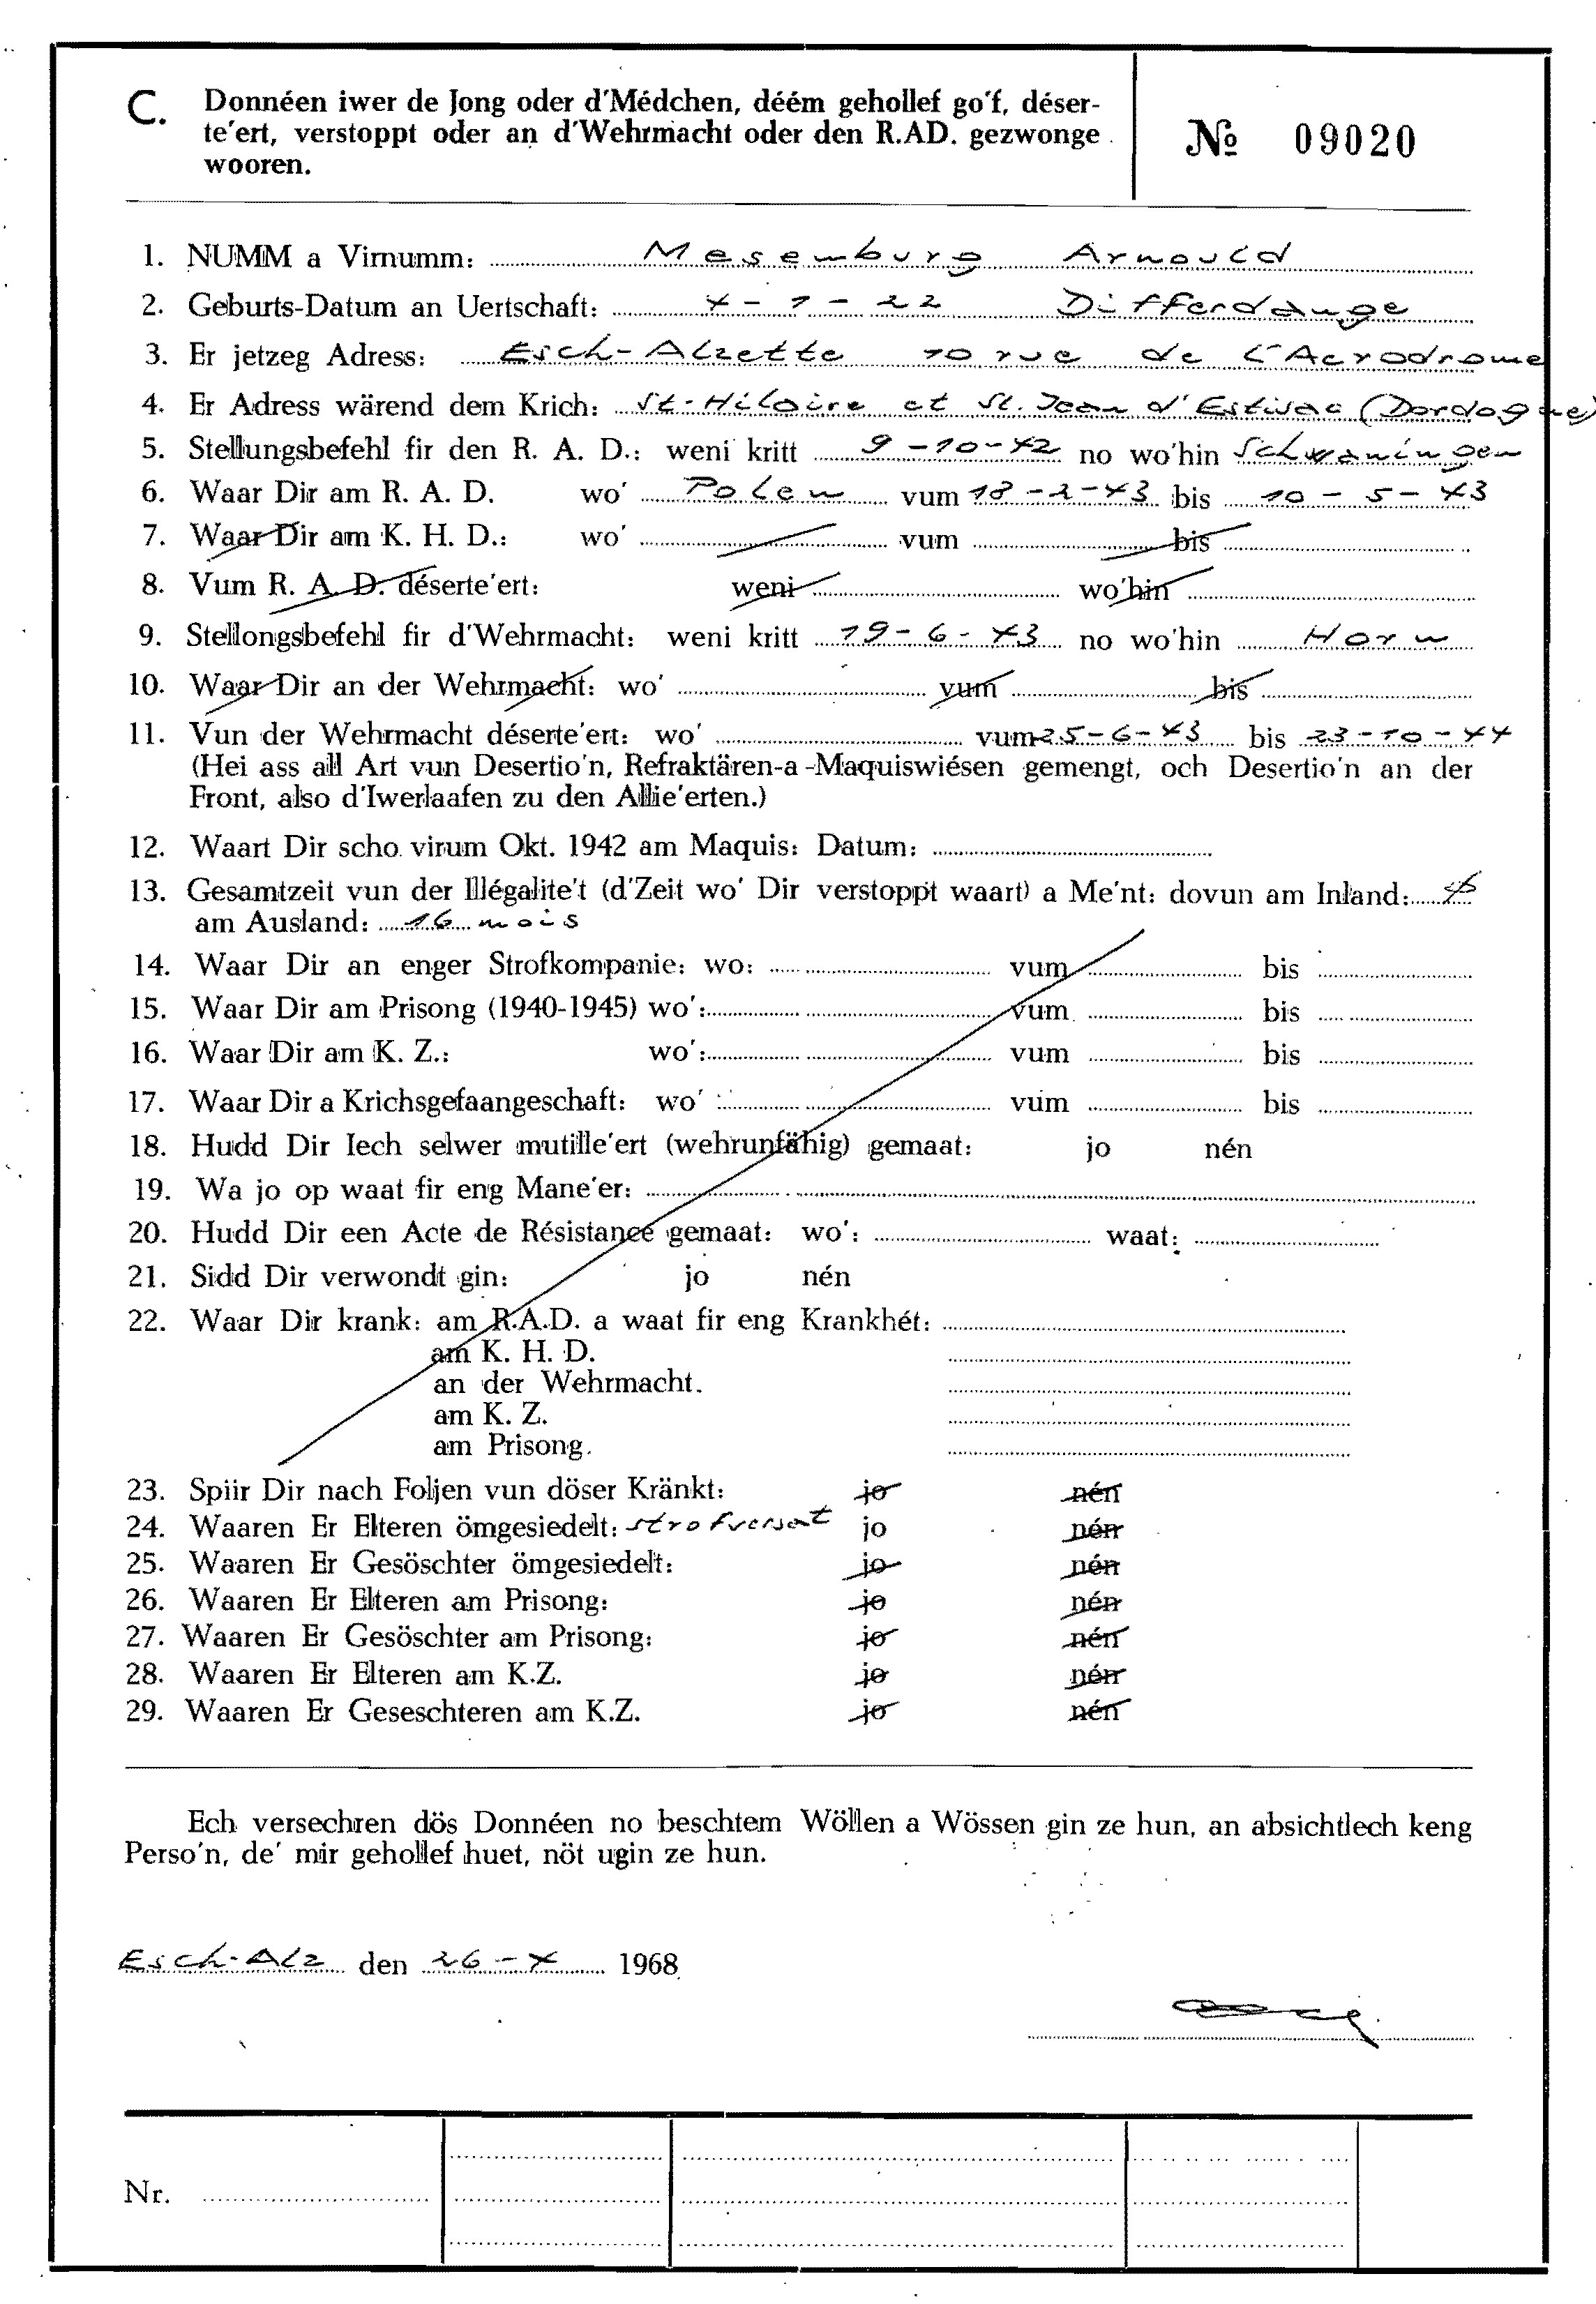 C. Donnéen iwer de Jong oder d'Médchen, déém gehollef go'f, déser-
te'ert, verstoppt oder an d'Wehrmacht oder den R.AD. gezwonge
wooren.
№ 09020
1. NUMM a Virnumm: Mesemburg Arnould
2. Geburts-Datum an Uertschaft: 4-1-22 Differdange
3. Er jetzeg Adress: Esch-Alzette 10 rue de l'Aerodrome
4. Er Adress wärend dem Krich: St-Hilaire et St. Jean d'Estissac (Dordogne)
5. Stellungsbefehl fir den R. A. D.: weni kritt 9-10-42 no wo'hin Schwaningen
6. Waar Dir am R. A. D. wo' Polen vum 18-2-43 bis 10-5-43
7. Waar Dir am K. H. D.: wo' vum bis
8. Vum R. A. D. déserte'ert: weni wo'hin
9. Stellongsbefehl fir d'Wehrmacht: weni kritt 19-6-43 no wo'hin Horn
10. Waar Dir an der Wehrmacht: wo' vum bis
11. Vun der Wehrmacht déserte'ert: wo' vum 25-6-43 bis 23-10-44
(Hei ass all Art vun Desertio'n, Refraktären-a-Maquiswiésen gemengt, och Desertio'n an der
Front, also d'Iwerlaafen zu den Allie'erten.)
12. Waart Dir scho virum Okt. 1942 am Maquis: Datum:
13. Gesamtzeit vun der Illégalite't (d'Zeit wo' Dir verstoppt waart) a Me'nt: dovun am Inland:
am Ausland: 16 mois
14. Waar Dir an enger Strofkompanie: wo: vum bis
15. Waar Dir am Prisong (1940-1945) wo': vum bis
16. Waar Dir am K. Z.: wo': vum bis
17. Waar Dir a Krichsgefaangeschaft: wo' vum bis
18. Hudd Dir Iech selwer mutille'ert (wehrunfähig) gemaat: jo nén
19. Wa jo op waat fir eng Mane'er:
20. Hudd Dir een Acte de Résistance gemaat: wo': waat:
21. Sidd Dir verwondt gin: jo nén
22. Waar Dir krank: am R.A.D. a waat fir eng Krankhét:
am K. H. D.
an der Wehrmacht.
am K. Z.
am Prisong.
23. Spiir Dir nach Foljen vun döser Kränkt: jo nén
24. Waaren Er Elteren ömgesiedelt: strofversat jo nén
25. Waaren Er Gesöschter ömgesiedelt: jo nén
26. Waaren Er Elteren am Prisong: jo nén
27. Waaren Er Gesöschter am Prisong: jo nén
28. Waaren Er Elteren am K.Z. jo nén
29. Waaren Er Geseschteren am K.Z. jo nén
Ech versechren dös Donnéen no beschtem Wöllen a Wössen gin ze hun, an absichtlech keng
Perso'n, de' mir gehollef huet, nöt ugin ze hun.
Esch-Alz den 26-X 1968
Nr.